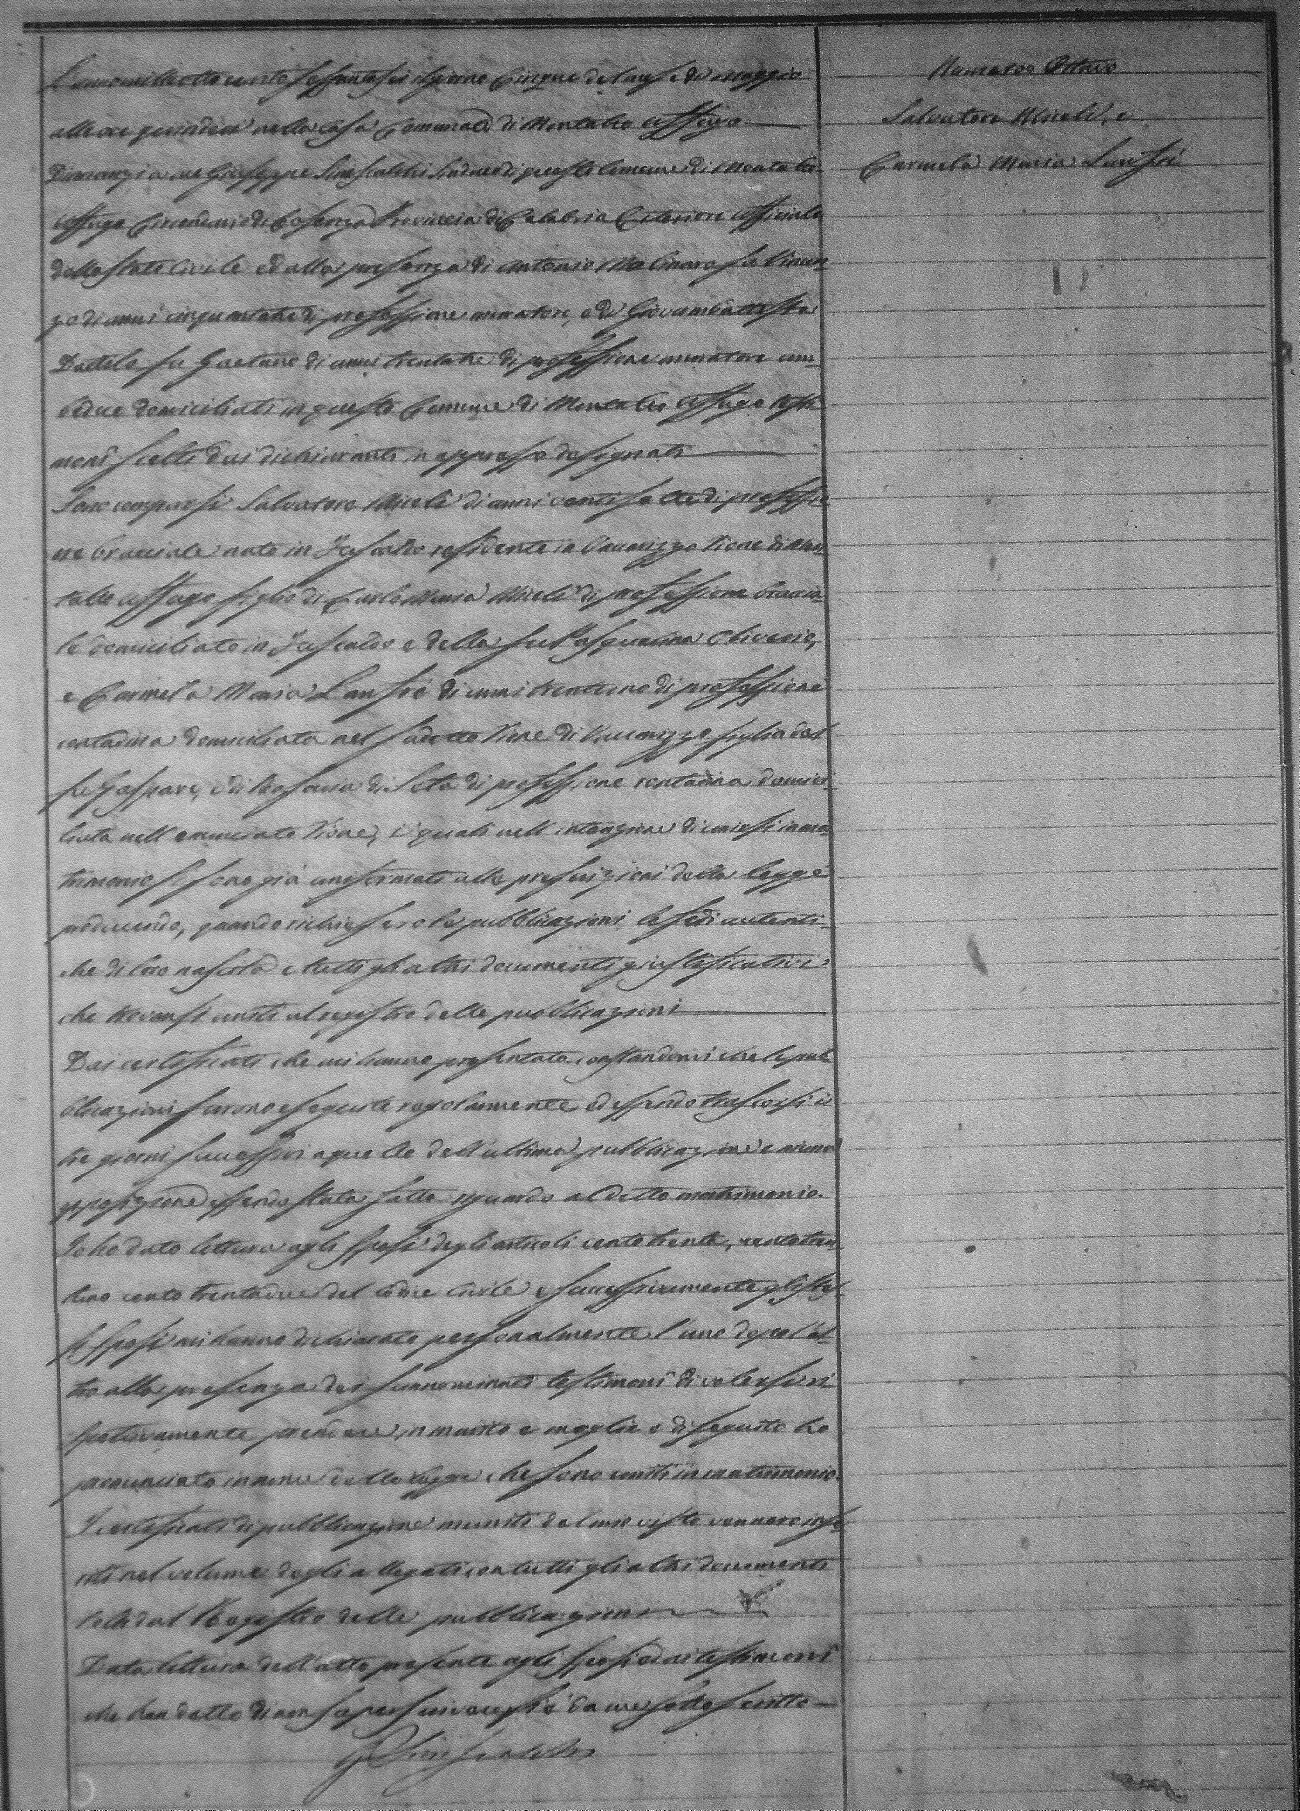 L'anno mille otto cento sessantasei il giorno cinque del mese di maggio
alle ore quindici nella casa Comunale di Montalto Uffugo
Dinanzi a me Giuseppe Siniscalchi Sindaco di questo Comune di Montalto
Uffugo Circondario di Cosenza Provincia di Calabria Citeriore Uffiziale
dello Stato Civile ed alla presenza di Antonio Molinaro fu Vincen
zo di anni cinquanta di professione muratore, e di Giovambattista
fu Gaetano di anni trentatre di professione muratore am
bidue domiciliati in questo Comune di Montalto Uffugo testi
moni scelti dai dichiaranti in appresso designati
Sono comparsi Salvatore Miceli di anni ventisette di professio
ne bracciale nato in Fuscaldo residente in Vaccarizzo Rione di Mon
talto Uffugo figlio di Carlo Maria Miceli di professione braccia
le domiciliato in Fuscaldo e della fu Pasqualina Oliverio,
e Carmela Maria di anni trentuno di professione
contadina domiciliata nel sudetto Rione di Vaccarizzo figlia del
fu Gaspare, e di Rosaria di Seta di professione contadina domici
liata nell'enunciato Rione, i quali nell'intenzione di unirsi in ma
trimonio si sono già uniformati alle prescrizioni della legge
producendo, quando richiesero le pubblicazioni le fedi autenti
che di loro nascita e tutti gli altri documenti giustificativi
che trovansi uniti al registro delle pubblicazioni
Dai certificati che mi hanno presentato constandomi che le pub
blicazioni furono eseguite regolarmente ed essendo trascorsi i
tre giorni successivi a quello dell'ultima pubblicazione e niuna
opposizione essendo stata fatta riguardo al detto matrimonio.
Io ho dato lettura agli sposi degli articoli cento trenta, cento tren
tuno cento trentadue del Codice Civile e successivamente gli stes
si sposi mi hanno dichiarato personalmente l'uno dopo l'al
tro alla presenza dei sunnominati testimoni di volersi ri
spettivamente prendere in marito e moglie e di seguito ho
pronunciato in nome della legge che sono uniti in matrimonio.
I certificati di pubblicazione muniti del mio visto vennero inse
riti nel volume degli allegati con tutti gli altri documenti
tolti dal Registro delle pubblicazioni
Data lettura dell'atto presente agli sposi ed ai testimoni
che han detto di non saper scrivere si è da me sottoscritto
G Siniscalchi
Numero Otto
Salvatore Miceli, e
Carmela Maria